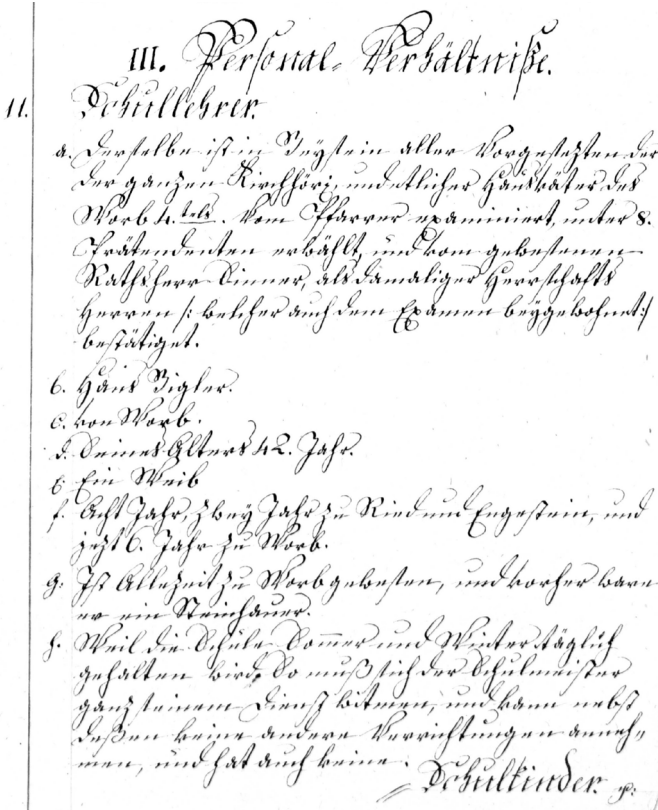 III. Personal-Verhältniße.
11. Schullehrer.
a. Derselbe ist in Beystein aller Vorgesezten der
der ganzen Kirchhöri, und etlicher Hausväter des
Worb 4.tels. vom Pfarrer examiniert, unter 8.
Prätendenten erwählt, und vom gewesenen
Rathsherr Sinner, als damaliger Herrschafts
Herren /: welcher auch dem Examen beygewohnet :/
bestätiget.
b. Hans Bigler.
c. von Worb.
d. Seines Alters 42. Jahr.
e. Ein Weib
f. Acht Jahr, zwey Jahr zu Ried und Engestein, und
jezt 6. Jahr zu Worb.
g. Ist Allezeit zu Worb gewesen, und vorher ware
er ein Steinhauer.
h. Weil die Schule Sommer und Winter täglich
gehalten wird, So muß sich der Schulmeister
ganz seinem Dienst widmen, und kann nebst
deßen keine andere Verrichtungen anneh-
men, und hat auch keine.
Schulkinder.